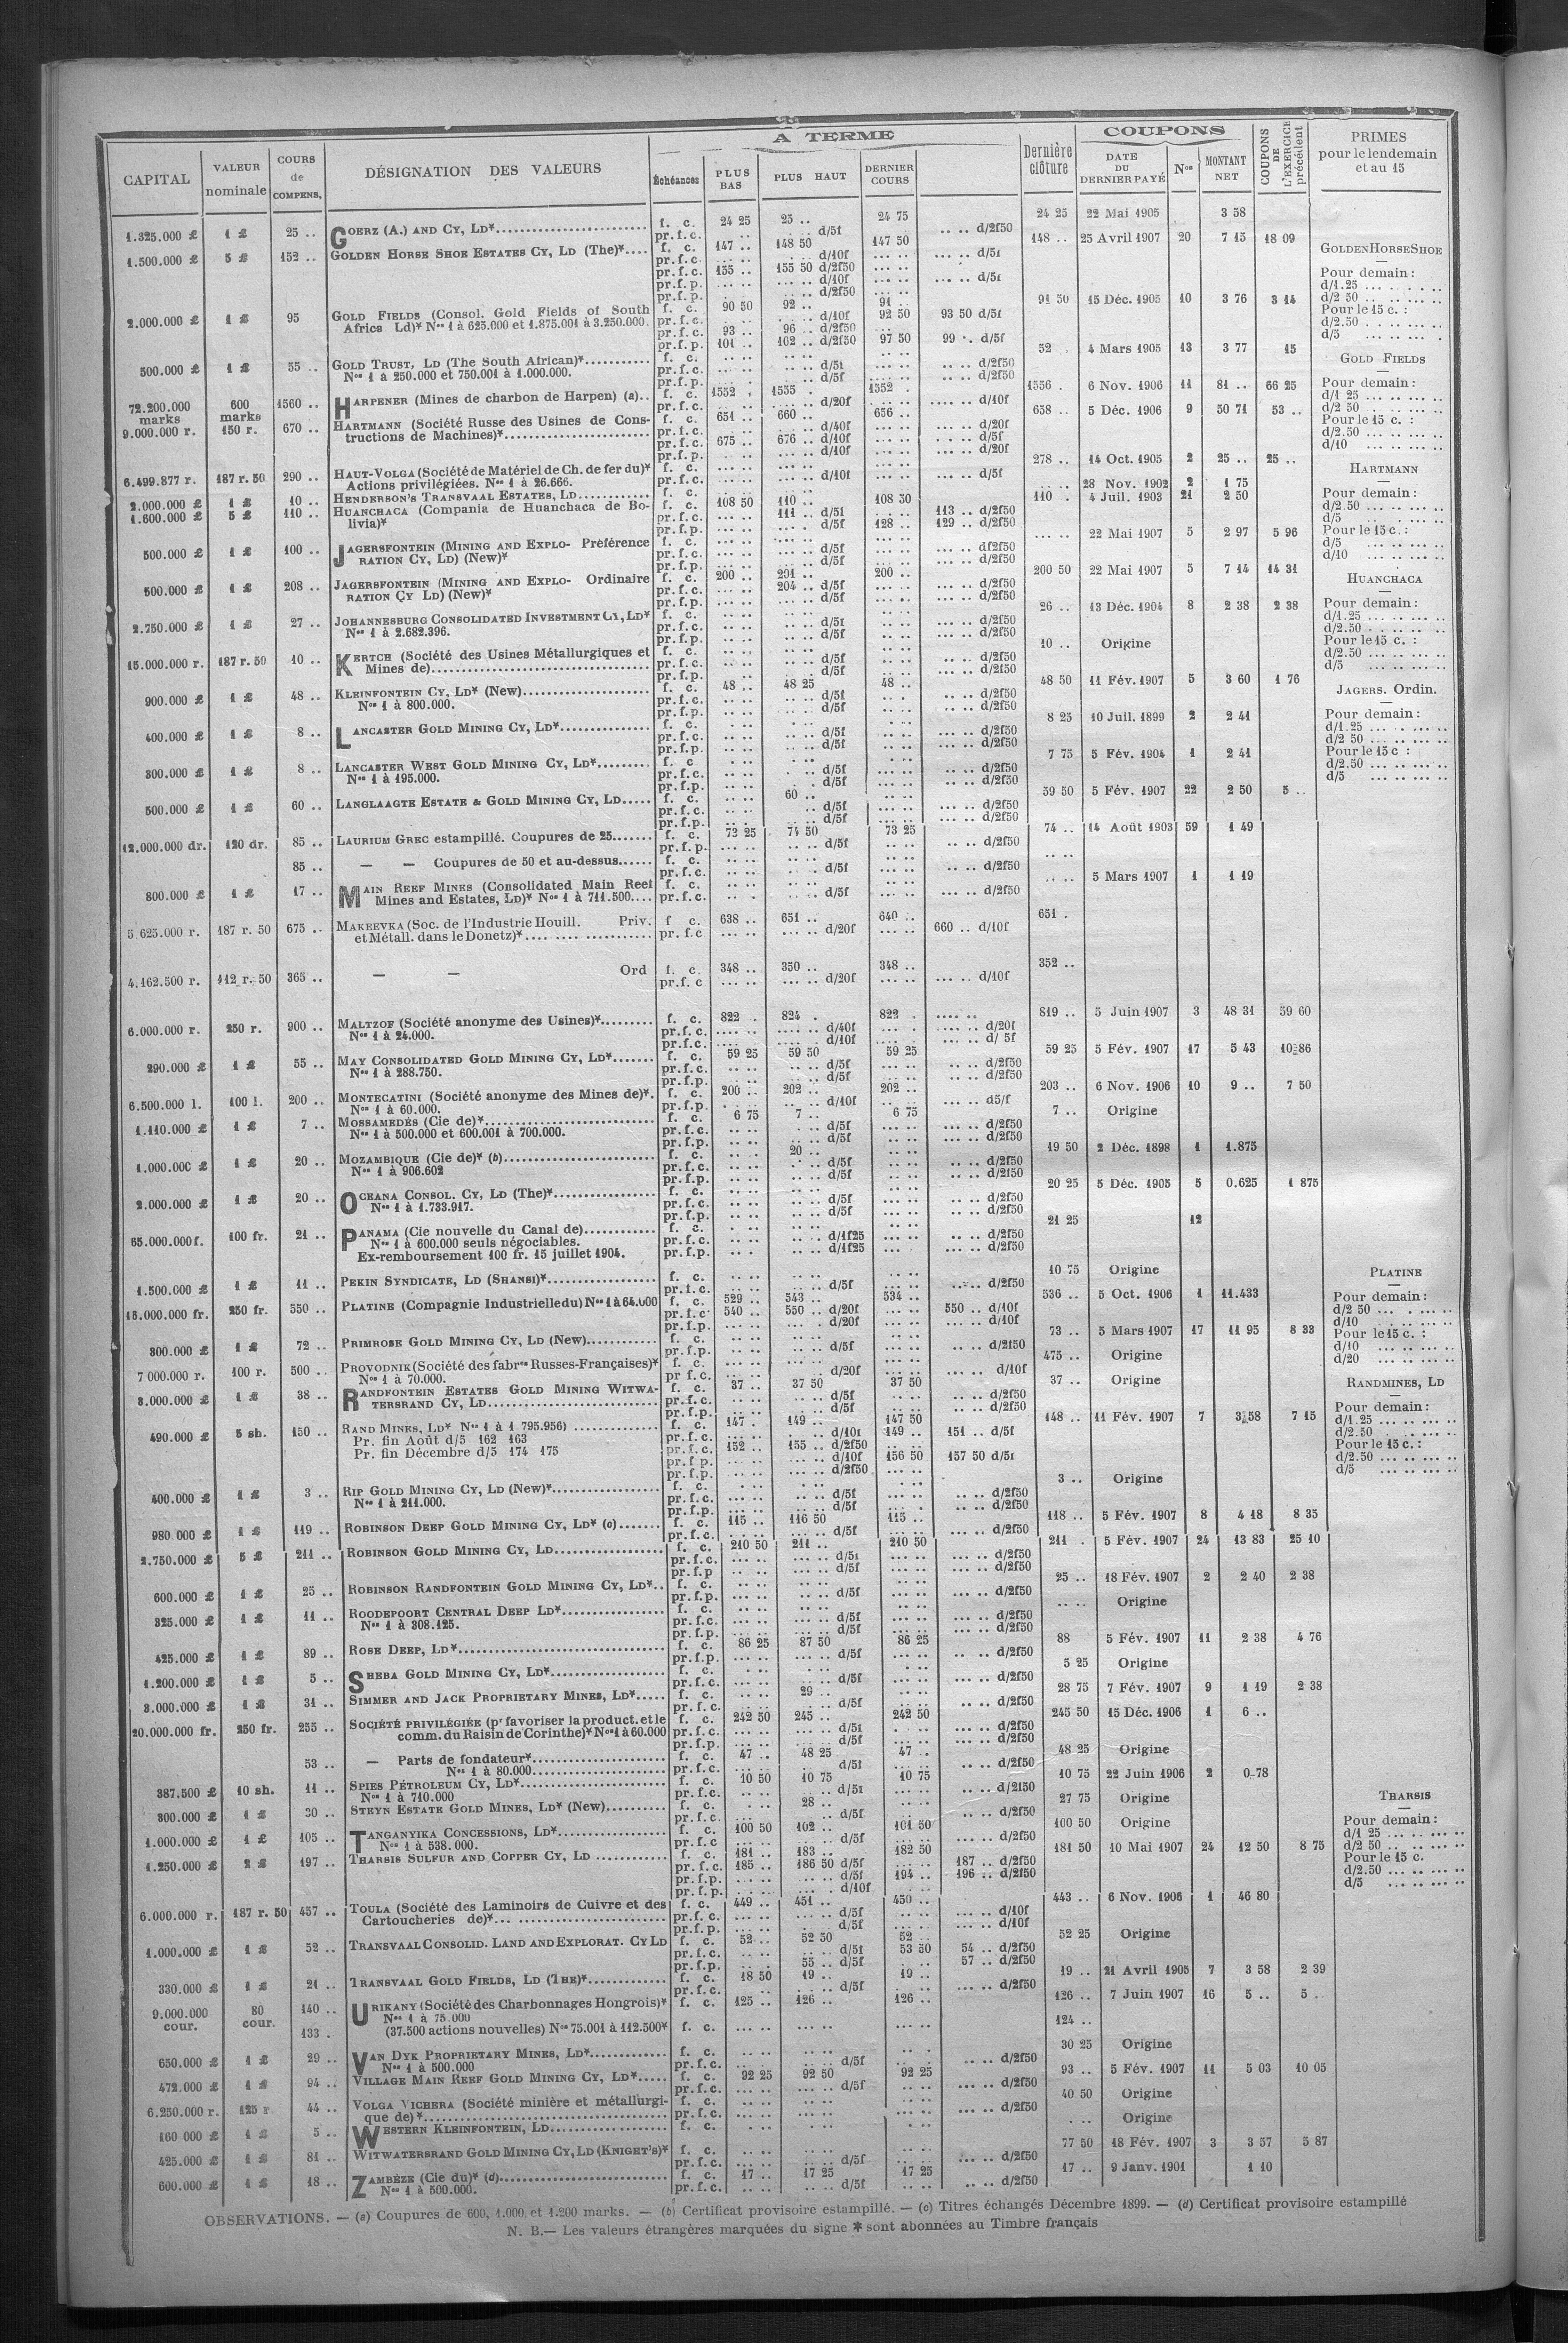 A TERME
COUPONS
CAPITAL | VALEUR nominale | COURS de COMPENS. | DÉSIGNATION DES VALEURS | Échéances | PLUS BAS | PLUS HAUT | DERNIER COURS | Dernière clôture | DATE DU DERNIER PAYÉ | Nos | MONTANT NET | COUPONS DE L'EXERCICE précédent | PRIMES pour le lendemain et au 15
1.325.000 £ | 1 £ | 25 .. | GOERZ (A.) AND CY, LD* | f. c. | 24 25 | 25 .. | 24 75 | 24 25 | 22 Mai 1905 | 3 58
pr.f.c. | d/5f | d/2f50
1.500.000 £ | 5 £ | 152 .. | GOLDEN HORSE SHOE ESTATES CY, LD (The)* | f. c. | 147 .. | 148 50 | 147 50 | 148 .. | 25 Avril 1907 | 20 | 7 15 | 18 09
pr.f.c. | d/10f | d/5f
pr.f.c. | 155 .. | 155 50 d/2f50
pr.f.p. | d/10f | d/5f
pr.f.p. | d/2f50
2.000.000 £ | 1 £ | 95 | GOLD FIELDS (Consol. Gold Fields of South | f. c. | 90 50 | 92 .. | 91 .. | 91 50 | 15 Déc. 1905 | 10 | 3 76 | 3 14
Africa Ld)* Nos 1 à 625.000 et 1.875.001 à 3.250.000 | pr.f.c. | d/10f | 92 50 | 93 50 d/5f
pr.f.c. | 93 .. | 96 .. d/2f50
pr.f.p. | 101 .. | 102 .. d/2f50 | 97 50 | 99 .. d/5f
500.000 £ | 1 £ | 55 .. | GOLD TRUST, LD (The South African)* | f. c. | 52 | 4 Mars 1905 | 13 | 3 77 | 15
Nos 1 à 250.000 et 750.001 à 1.000.000. | pr.f.c. | d/5f | d/2f50
pr.f.p. | d/5f | d/2f50
72.200.000 marks | 600 marks | 1560 .. | HARPENER (Mines de charbon de Harpen) (a) | f. c. | 1552 . | 1555 . | 1552 . | 1556 . | 6 Nov. 1906 | 11 | 81 .. | 66 25
pr.f.c. | d/20f | d/10f
9.000.000 r. | 150 r. | 670 .. | HARTMANN (Société Russe des Usines de Cons- | f. c. | 651 .. | 660 .. | 656 .. | 658 .. | 5 Déc. 1906 | 9 | 50 71 | 53 ..
tructions de Machines)* | pr.f.c. | d/40f | d/20f
pr.f.c. | 675 .. | 676 .. d/10f | d/5f
pr.f.p. | d/10f | d/20f
6.499.877 r. | 187 r. 50 | 290 .. | HAUT-VOLGA (Société de Matériel de Ch. de fer du)* | f. c. | 278 .. | 14 Oct. 1905 | 2 | 25 .. | 25 ..
Actions privilégiées. Nos 1 à 26.666. | pr.f.c. | d/10f | d/5f
2.000.000 £ | 1 £ | 10 .. | HENDERSON'S TRANSVAAL ESTATES, LD | f. c. | 28 Nov. 1902 | 2 | 1 75
1.600.000 £ | 5 £ | 110 .. | HUANCHACA (Compania de Huanchaca de Bo- | f. c. | 108 50 | 110 .. | 108 50 | 110 . | 4 Juil. 1903 | 21 | 2 50
livia)* | pr.f.c. | 111 .. d/5f | 113 .. d/2f50
pr.f.p. | d/5f | 128 .. | 129 .. d/2f50
500.000 £ | 1 £ | 100 .. | JAGERSFONTEIN (MINING AND EXPLO- Préférence | f. c. | 22 Mai 1907 | 5 | 2 97 | 5 96
RATION CY, LD) (New)* | pr.f.c. | d/5f | d/2f50
pr.f.p. | d/5f | d/2f50
500.000 £ | 1 £ | 208 .. | JAGERSFONTEIN (MINING AND EXPLO- Ordinaire | f. c. | 200 .. | 201 .. | 200 .. | 200 50 | 22 Mai 1907 | 5 | 7 14 | 14 31
RATION CY LD) (New)* | pr.f.c. | 204 .. d/5f | d/2f50
pr.f.p. | d/5f | d/2f50
2.750.000 £ | 1 £ | 27 .. | JOHANNESBURG CONSOLIDATED INVESTMENT CY, LD* | f. c. | 26 .. | 13 Déc. 1904 | 8 | 2 38 | 2 38
Nos 1 à 2.682.396. | pr.f.c. | d/5f | d/2f50
pr.f.p. | d/5f | d/2f50
15.000.000 r. | 187 r. 50 | 10 .. | KERTCH (Société des Usines Métallurgiques et | f. c. | 10 .. | Origine
Mines de) | pr.f.c. | d/5f | d/2f50
pr.f.p. | d/5f | d/2f50
900.000 £ | 1 £ | 48 .. | KLEINFONTEIN CY, LD* (New) | f. c. | 48 .. | 48 25 | 48 .. | 48 50 | 11 Fév. 1907 | 5 | 3 60 | 1 76
Nos 1 à 800.000. | pr.f.c. | d/5f | d/2f50
pr.f.p. | d/5f | d/2f50
400.000 £ | 1 £ | 8 .. | LANCASTER GOLD MINING CY, LD* | f. c. | 8 25 | 10 Juil. 1899 | 2 | 2 41
pr.f.c. | d/5f | d/2f50
pr.f.p. | d/5f | d/2f50
300.000 £ | 1 £ | 8 .. | LANCASTER WEST GOLD MINING CY, LD* | f. c | 7 75 | 5 Fév. 1904 | 1 | 2 41
Nos 1 à 195.000. | pr.f.c. | d/5f | d/2f50
pr.f.p. | d/5f | d/2f50
500.000 £ | 1 £ | 60 .. | LANGLAAGTE ESTATE & GOLD MINING CY, LD | f. c. | 60 .. | 59 50 | 5 Fév. 1907 | 22 | 2 50 | 5 ..
pr.f.c. | d/5f | d/2f50
pr.f.p. | d/5f | d/2f50
12.000.000 dr. | 120 dr. | 85 .. | LAURIUM GREC estampillé. Coupures de 25 | f. c. | 73 25 | 74 50 | 73 25 | 74 .. | 14 Août 1903 | 59 | 1 49
pr.f.p. | d/5f | d/2f50
85 .. | — — Coupures de 50 et au-dessus | f. c.
pr.f.c. | d/5f | d/2f50
800.000 £ | 1 £ | 17 .. | MAIN REEF MINES (Consolidated Main Reef | f. c. | 5 Mars 1907 | 1 | 1 19
Mines and Estates, LD)* Nos 1 à 711.500 | pr.f.c. | d/5f | d/2f50
5.625.000 r. | 187 r. 50 | 675 .. | MAKEEVKA (Soc. de l'Industrie Houill. Priv. | f c. | 638 .. | 651 .. | 640 .. | 651 .
et Métall. dans le Donetz)* | pr.f.c | d/20f | 660 .. d/10f
4.162.500 r. | 112 r. 50 | 365 .. | — — Ord | f. c. | 348 .. | 350 .. | 348 .. | 352 ..
pr.f.c | d/20f | d/10f
6.000.000 r. | 250 r. | 900 .. | MALTZOF (Société anonyme des Usines)* | f. c. | 822 . | 824 . | 822 . | 819 .. | 5 Juin 1907 | 3 | 48 31 | 59 60
Nos 1 à 24.000. | pr.f.c. | d/40f | d/20f
pr.f.c. | d/10f | d/ 5f
290.000 £ | 1 £ | 55 .. | MAY CONSOLIDATED GOLD MINING CY, LD* | f. c. | 59 25 | 59 50 | 59 25 | 59 25 | 5 Fév. 1907 | 17 | 5 43 | 10 86
Nos 1 à 288.750. | pr.f.c. | d/5f | d/2f50
pr.f.p. | d/5f | d/2f50
6.500.000 l. | 100 l. | 200 .. | MONTECATINI (Société anonyme des Mines de)*. | f. c. | 200 .. | 202 .. | 202 .. | 203 .. | 6 Nov. 1906 | 10 | 9 .. | 7 50
Nos 1 à 60.000. | pr.f.p. | d/10f | d5/f
1.110.000 £ | 1 £ | 7 .. | MOSSAMEDÈS (Cie de)* | f. c. | 6 75 | 7 .. | 6 75 | 7 .. | Origine
Nos 1 à 500.000 et 600.001 à 700.000. | pr.f.c. | d/5f | d/2f50
pr.f.p. | d/5f | d/2f50
1.000.000 £ | 1 £ | 20 .. | MOZAMBIQUE (Cie de)* (b) | f. c. | 20 .. | 19 50 | 2 Déc. 1898 | 1 | 1.875
Nos 1 à 906.602 | pr.f.c. | d/5f | d/2f50
pr.f.p. | d/5f | d/2f50
2.000.000 £ | 1 £ | 20 .. | OCEANA CONSOL. CY, LD (The)* | f. c. | 20 25 | 5 Déc. 1905 | 5 | 0.625 | 1 875
Nos 1 à 1.733.917. | pr.f.c. | d/5f | d/2f50
pr.f.p. | d/5f | d/2f50
65.000.000 f. | 100 fr. | 21 .. | PANAMA (Cie nouvelle du Canal de) | f. c. | 21 25 | 12
Nos 1 à 600.000 seuls négociables. | pr.f.c. | d/1f25 | d/2f50
Ex-remboursement 100 fr. 15 juillet 1904. | pr.f.p. | d/1f25 | d/2f50
1.500.000 £ | 1 £ | 11 .. | PEKIN SYNDICATE, LD (SHANSI)* | f. c. | 10 75 | Origine
pr.f.c. | d/5f | d/2f50
15.000.000 fr. | 250 fr. | 550 .. | PLATINE (Compagnie Industrielle du) Nos 1 à 64.000 | f. c. | 529 .. | 543 .. | 534 .. | 536 .. | 5 Oct. 1906 | 1 | 11.433
pr.f.c. | 540 .. | 550 .. d/20f | 550 .. d/10f
pr.f.p. | d/20f | d/10f
300.000 £ | 1 £ | 72 .. | PRIMROSE GOLD MINING CY, LD (New) | f. c. | 73 .. | 5 Mars 1907 | 17 | 11 95 | 8 33
pr.f.p. | d/5f | d/2f50
7 000.000 r. | 100 r. | 500 .. | PROVODNIK (Société des fabres Russes-Françaises)* | f. c. | 475 .. | Origine
Nos 1 à 70.000. | pr f.c. | d/20f | d/10f
3.000.000 £ | 1 £ | 38 .. | RANDFONTEIN ESTATES GOLD MINING WITWA- | f. c. | 37 .. | 37 50 | 37 50 | 37 .. | Origine
TERSRAND CY, LD | pr.f.c. | d/5f | d/2f50
pr.f.p. | d/5f | d/2f50
490.000 £ | 5 sh. | 150 .. | RAND MINES, LD* Nos 1 à 1 795.956) | f. c. | 147 . | 149 .. | 147 50 | 148 .. | 11 Fév. 1907 | 7 | 3 58 | 7 15
Pr. fin Août d/5 162 163 | pr.f.c. | d/10f | 149 .. | 151 .. d/5f
Pr. fin Décembre d/5 174 175 | pr.f.c. | 152 .. | 155 .. d/2f50
pr.f.p. | d/10f | 156 50 | 157 50 d/5f
pr.f.p. | d/2f50
400.000 £ | 1 £ | 3 .. | RIP GOLD MINING CY, LD (New)* | f. c. | 3 .. | Origine
Nos 1 à 211.000. | pr.f.c. | d/5f | d/2f50
pr.f.p. | d/5f | d/2f50
980 000 £ | 1 £ | 119 .. | ROBINSON DEEP GOLD MINING CY, LD* (c) | f. c. | 115 .. | 116 50 | 115 .. | 118 .. | 5 Fév. 1907 | 8 | 4 18 | 8 35
pr.f.c. | d/5f | d/2f50
2.750.000 £ | 5 £ | 211 .. | ROBINSON GOLD MINING CY, LD | f. c. | 210 50 | 211 .. | 210 50 | 211 . | 5 Fév. 1907 | 24 | 13 83 | 25 10
pr.f.c. | d/5f | d/2f50
pr.f.p | d/5f | d/2f50
600.000 £ | 1 £ | 25 .. | ROBINSON RANDFONTEIN GOLD MINING CY, LD* | f. c. | 25 .. | 18 Fév. 1907 | 2 | 2 40 | 2 38
pr.f.p. | d/5f | d/2f50
325.000 £ | 1 £ | 11 .. | ROODEPOORT CENTRAL DEEP LD* | f. c. | Origine
Nos 1 à 308.125. | pr.f.c. | d/5f | d/2f50
pr.f.p. | d/5f | d/2f50
425.000 £ | 1 £ | 89 .. | ROSE DEEP, LD* | f. c. | 86 25 | 87 50 | 86 25 | 88 | 5 Fév. 1907 | 11 | 2 38 | 4 76
pr.f.p. | d/5f | d/2f50
1.200.000 £ | 1 £ | 5 .. | SHEBA GOLD MINING CY, LD* | f. c. | 5 25 | Origine
pr.f.c. | d/5f | d/2f50
3.000.000 £ | 1 £ | 31 .. | SIMMER AND JACK PROPRIETARY MINES, LD* | f. c. | 29 .. | 28 75 | 7 Fév. 1907 | 9 | 1 19 | 2 38
pr.f.c. | d/5f | d/2f50
20.000.000 fr. | 250 fr. | 255 .. | SOCIÉTÉ PRIVILÉGIÉE (pr favoriser la product. et le | f. c. | 242 50 | 245 .. | 242 50 | 245 50 | 15 Déc. 1906 | 1 | 6 ..
comm. du Raisin de Corinthe)* Nos 1 à 60.000 | pr.f.c. | d/5f | d/2f50
pr.f.p. | d/5f | d/2f50
53 .. | — Parts de fondateur* | f. c. | 47 .. | 48 25 | 47 .. | 48 25 | Origine
Nos 1 à 80.000 | pr.f.c. | d/5f | d/2f50
387.500 £ | 10 sh. | 11 .. | SPIES PÉTROLEUM CY, LD* | f. c. | 10 50 | 10 75 | 10 75 | 10 75 | 22 Juin 1906 | 2 | 0-78
Nos 1 à 710.000 | pr.f.c. | d/5f | d/2f50
300.000 £ | 1 £ | 30 .. | STEYN ESTATE GOLD MINES, LD* (New) | f. c. | 28 .. | 27 75 | Origine
pr.f.c. | d/5f | d/2f50
1.000.000 £ | 1 £ | 105 .. | TANGANYIKA CONCESSIONS, LD* | f. c. | 100 50 | 102 .. | 101 50 | 100 50 | Origine
Nos 1 à 538.000. | pr.f.c | d/5f | d/2f50
1.250.000 £ | 2 £ | 197 .. | THARSIS SULFUR AND COPPER CY, LD | f. c. | 181 .. | 183 .. | 182 50 | 181 50 | 10 Mai 1907 | 24 | 12 50 | 8 75
pr.f.c. | 185 .. | 186 50 d/5f | 187 .. d/2f50
pr.f.p. | d/5f | 194 .. | 196 .. d/2f50
pr.f.p. | d/10f
6.000.000 r. | 187 r. 50 | 457 .. | TOULA (Société des Laminoirs de Cuivre et des | f. c. | 449 .. | 451 .. | 450 .. | 443 .. | 6 Nov. 1906 | 1 | 46 80
Cartoucheries de)* | pr.f.c. | d/5f | d/10f
pr.f.p. | d/5f | d/10f
1.000.000 £ | 1 £ | 52 .. | TRANSVAAL CONSOLID. LAND AND EXPLORAT. CY LD | f. c. | 52 .. | 52 50 | 52 .. | 52 25 | Origine
pr.f.c. | d/5f | 53 50 | 54 .. d/2f50
pr.f.p. | 55 .. d/5f | 57 .. d/2f50
330.000 £ | 1 £ | 21 .. | TRANSVAAL GOLD FIELDS, LD (THE)* | f. c. | 18 50 | 19 .. | 19 .. | 19 .. | 21 Avril 1905 | 7 | 3 58 | 2 39
pr.f.c. | d/5f | d/2f50
9.000.000 cour. | 80 cour. | 140 .. | URIKANY (Société des Charbonnages Hongrois)* | f. c. | 125 .. | 126 .. | 126 .. | 126 .. | 7 Juin 1907 | 16 | 5 .. | 5 ..
Nos 1 à 75.000
133 . | (37.500 actions nouvelles) Nos 75.001 à 112.500* | f. c. | 124 ..
650.000 £ | 1 £ | 29 .. | VAN DYK PROPRIETARY MINES, LD* | f. c. | 30 25 | Origine
Nos 1 à 500.000 | pr.f.c. | d/5f | d/2f50
472.000 £ | 1 £ | 94 .. | VILLAGE MAIN REEF GOLD MINING CY, LD* | f. c. | 92 25 | 92 50 | 92 25 | 93 .. | 5 Fév. 1907 | 11 | 5 03 | 10 05
pr.f.c. | d/5f | d/2f50
6.250.000 r. | 125 r | 44 .. | VOLGA VICHERA (Société minière et métallurgi- | f. c. | 40 50 | Origine
que de)* | pr.f.c. | d/2f50
160 000 £ | 1 £ | 5 .. | WESTERN KLEINFONTEIN, LD | f. c. | Origine
425.000 £ | 1 £ | 81 .. | WITWATERSRAND GOLD MINING CY, LD (KNIGHT'S)* | f. c. | 77 50 | 18 Fév. 1907 | 3 | 3 57 | 5 87
pr.f.c. | d/5f | d/2f50
600.000 £ | 1 £ | 18 .. | ZAMBÈZE (Cie du)* (d) | f. c. | 17 .. | 17 25 | 17 25 | 17 .. | 9 Janv. 1901 | 1 10
Nos 1 à 500.000. | pr.f.c. | d/5f | d/2f50
GOLDEN HORSE SHOE
Pour demain :
d/1.25
d/2 50
Pour le 15 c. :
d/2.50
d/5
GOLD FIELDS
Pour demain :
d/1 25
d/2 50
Pour le 15 c. :
d/2.50
d/10
HARTMANN
Pour demain :
d/2.50
d/5
Pour le 15 c. :
d/5
d/10
HUANCHACA
Pour demain :
d/1.25
d/2.50
Pour le 15 c. :
d/2.50
d/5
JAGERS. Ordin.
Pour demain :
d/1.25
d/2 50
Pour le 15 c :
d/2.50
d/5
PLATINE
Pour demain :
d/2 50
d/10
Pour le 15 c. :
d/10
d/20
RANDMINES, LD
Pour demain :
d/1.25
d/2.50
Pour le 15 c. :
d/2.50
d/5
THARSIS
Pour demain :
d/1 25
d/2 50
Pour le 15 c.
d/2.50
d/5
OBSERVATIONS. — (a) Coupures de 600, 1.000, et 1.200 marks. — (b) Certificat provisoire estampillé. — (c) Titres échangés Décembre 1899. — (d) Certificat provisoire estampillé
N. B.— Les valeurs étrangères marquées du signe * sont abonnées au Timbre français